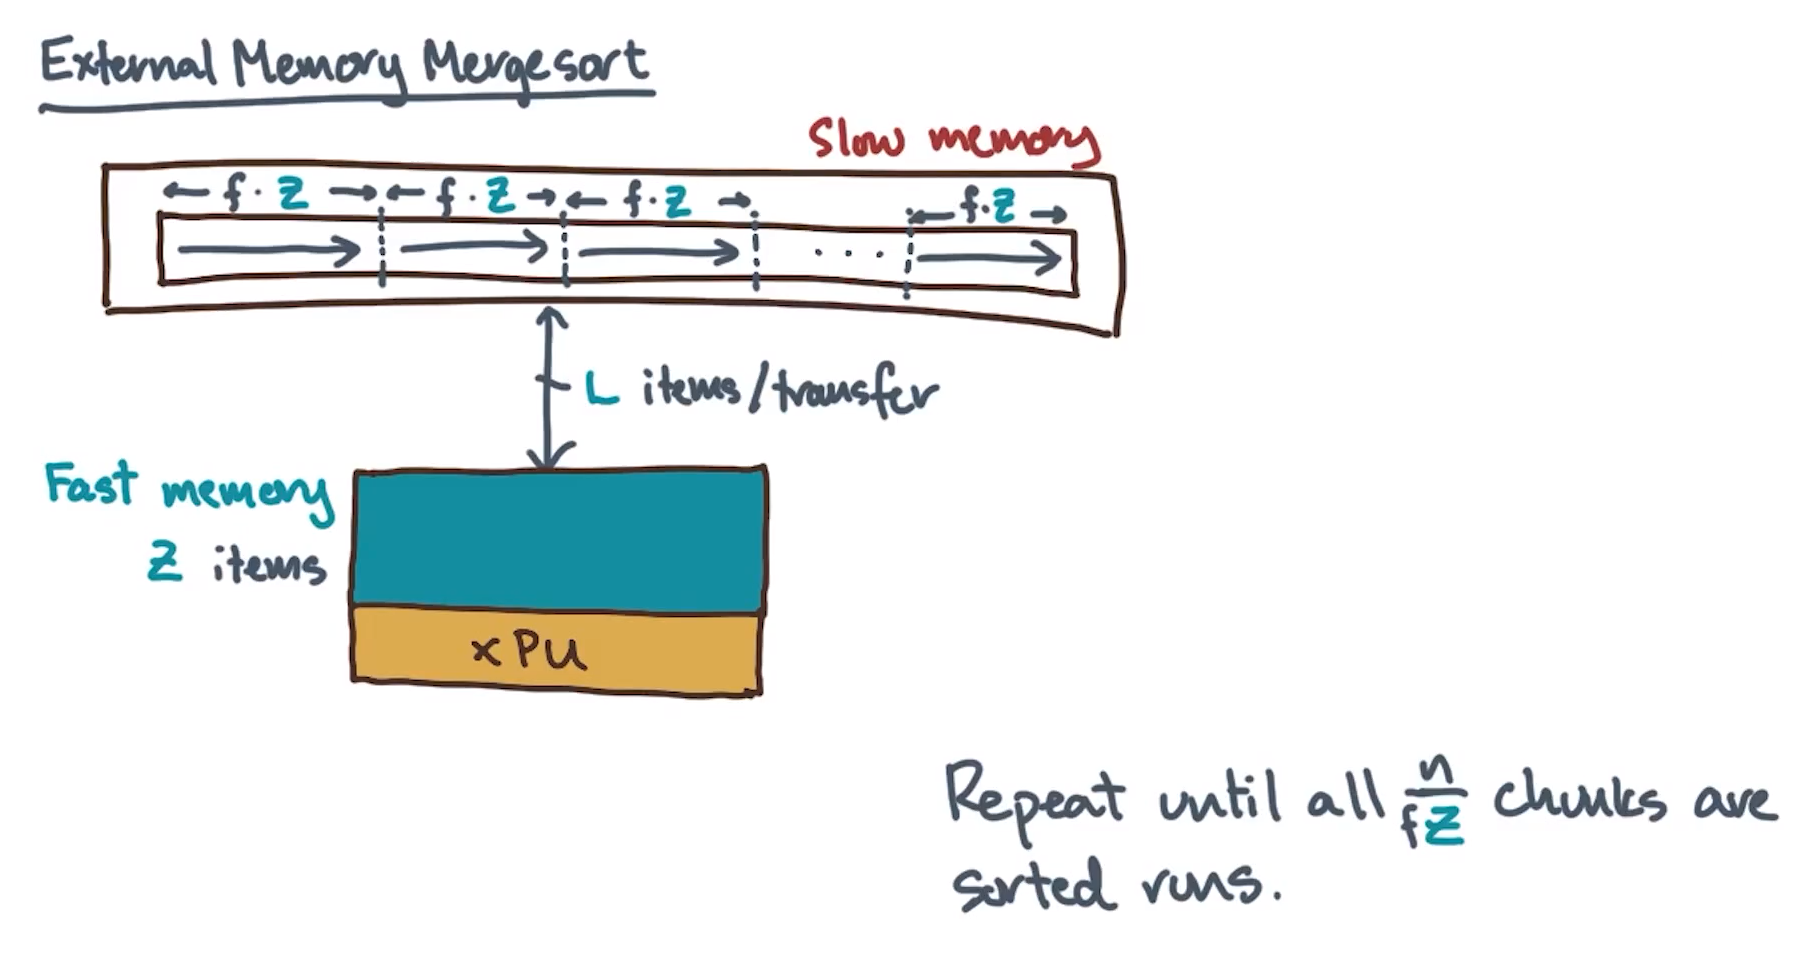 External Memory Mergesort
Slow memory
← f · Z → ← f · Z → ← f · Z → ← f · Z →
. . .
L items/transfer
Fast memory
Z items
xPU
Repeat until all n/fZ chunks are
sorted runs.